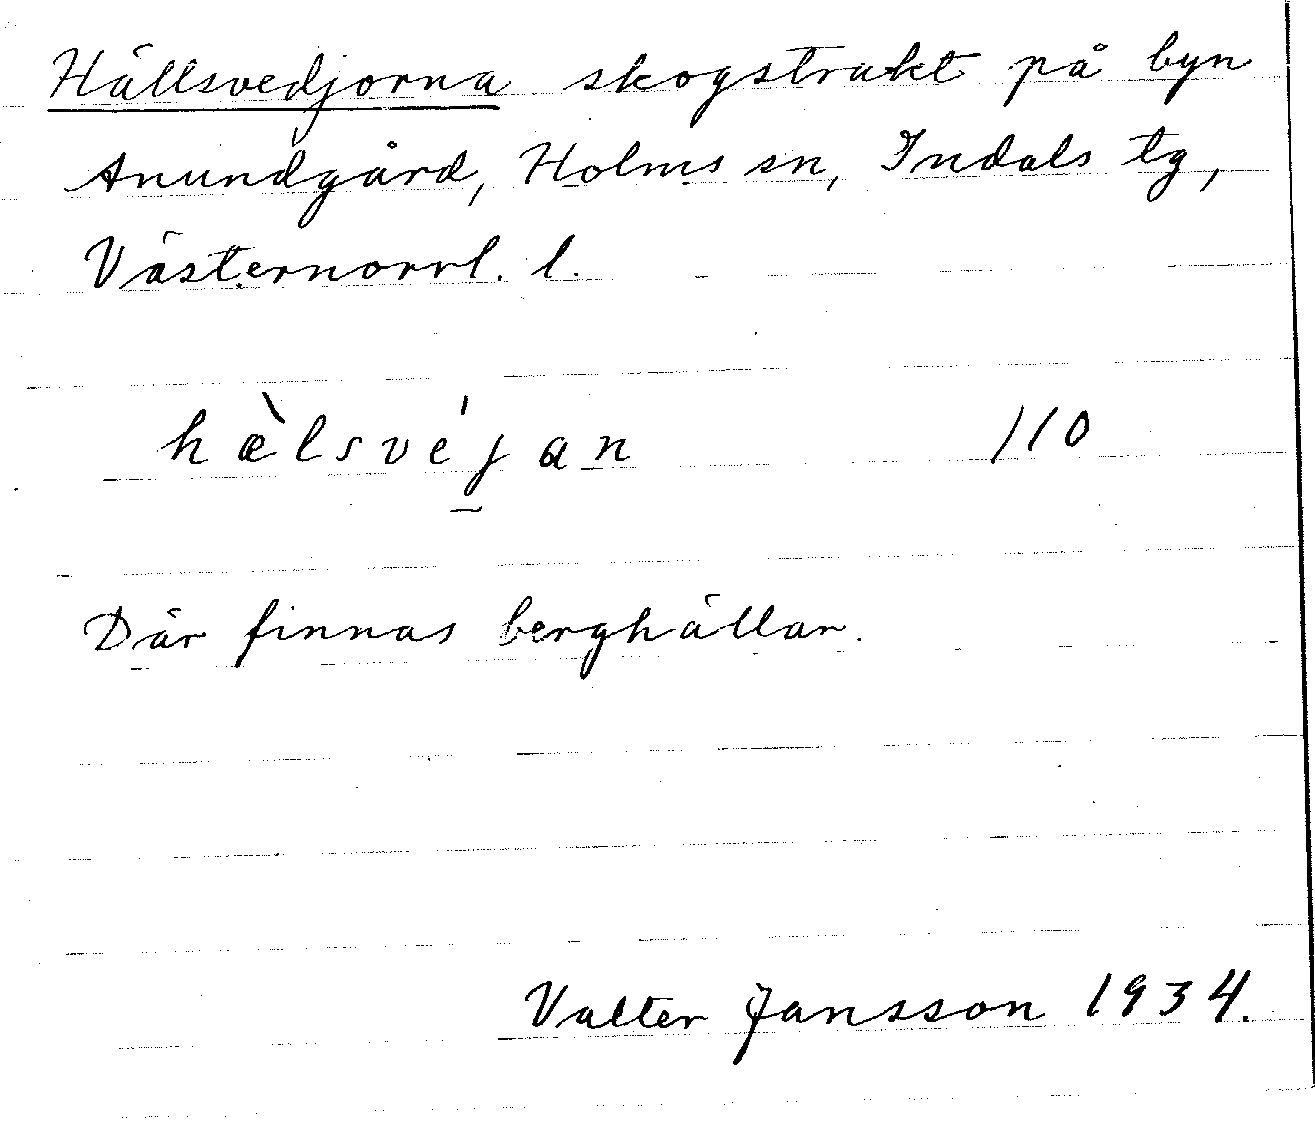 Hällsvedjorna skogstrakt på byn
Anundgård, Holms sn, Indals tg,
Västernorrl. l.
hæ̀lsve̍jan 110
Där finnas berghällar.
Valter Jansson 1934.